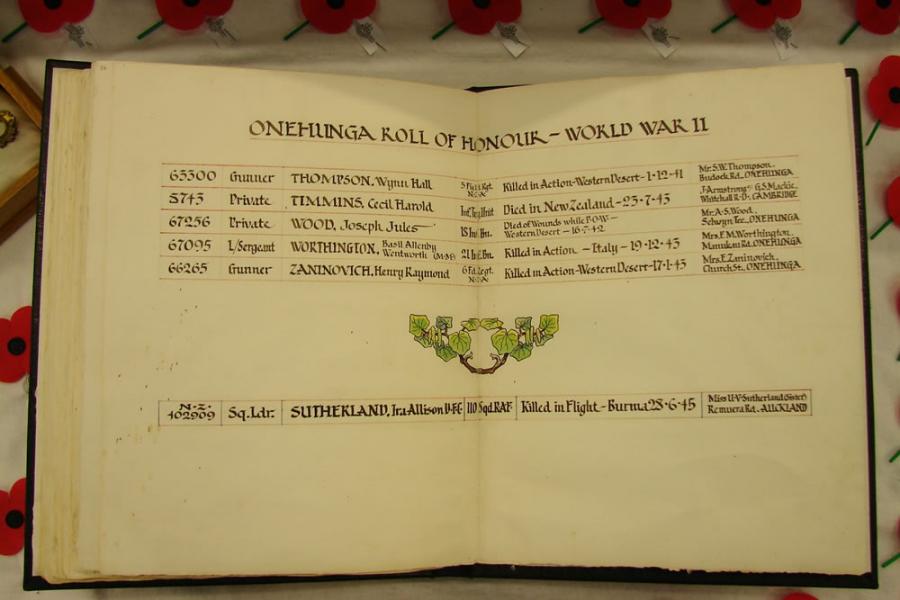 ONEHUNGA ROLL OF HONOUR – WORLD WAR II
65500 Gunner THOMPSON, Wynn Hall 5 Fld. Rgt. N.Z.A. Killed in Action-Western Desert-1·12·41 Mr. S.W. Thompson, Budock Rd., ONEHUNGA
5745 Private TIMMINS, Cecil Harold Died in New Zealand - 25·7·45 Whitehall R.D., CAMBRIDGE
67256 Private WOOD, Joseph Jules 18 Inf. Bn. Died of Wounds while P.O.W. – Western Desert – 16·7·42 Mr. A.S. Wood, Selwyn Tce., ONEHUNGA
67095 L/Sergeant WORTHINGTON, Basil Allenby Wentworth (M.M) 21 Inf. Bn. Killed in Action – Italy – 19·12·43 Mrs. E.M. Worthington, Manukau Rd., ONEHUNGA
66265 Gunner ZANINOVICH, Henry Raymond 6 Fd. Regt. N.Z.A. Killed in Action-Western Desert-17·1·43 Mrs. E. Zaninovich, Church St., ONEHUNGA
N.Z. 402909 Sq. Ldr. SUTHERLAND, Ira Allison D·F·C 110 Sqd. RAF Killed in Flight – Burma 28·6·45 Miss U.V. Sutherland (Sister) Remuera Rd., AUCKLAND